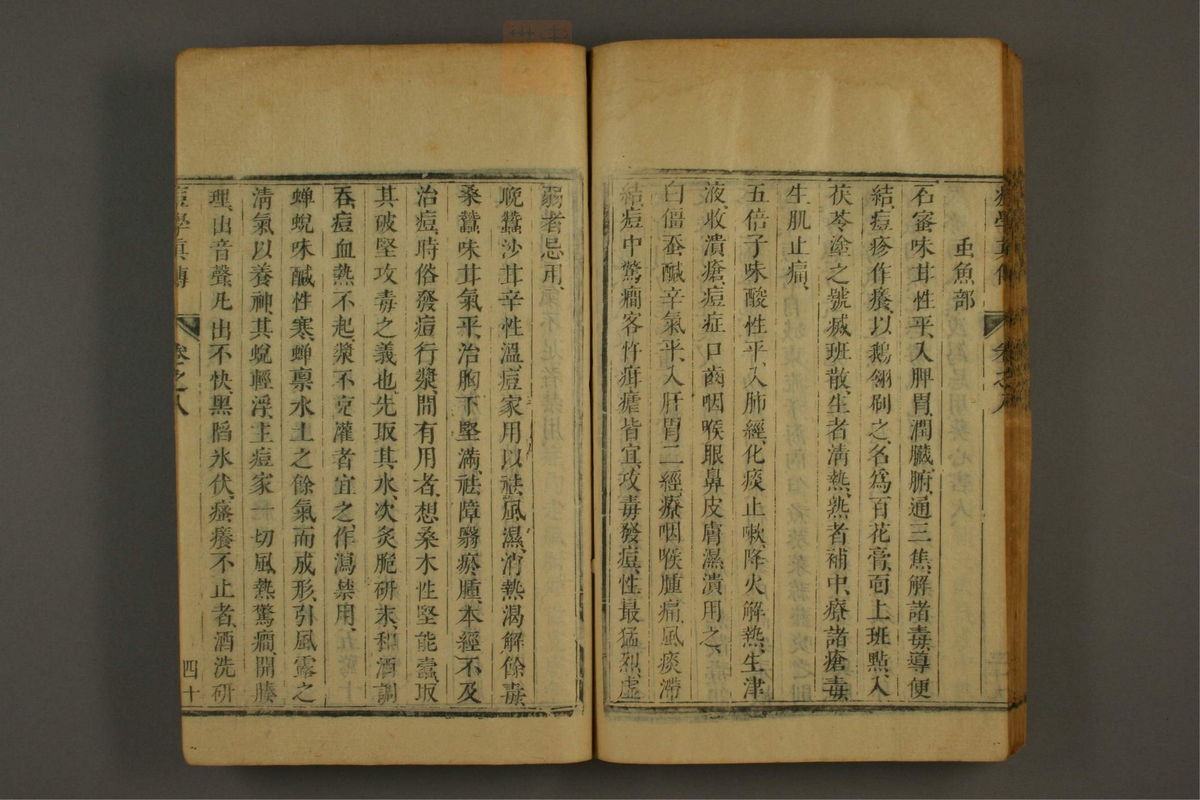 痘學眞傳 卷之八
虫魚部
石蜜味甘性平入脾胃潤臟腑通三焦解諸毒導便
結痘疹作癢以鵝翎刷之名爲百花膏面上班㸃入
茯苓塗之號㓕班散生者清熱熟者補中療諸瘡毒
生肌止痛
五倍子味酸性平入肺經化痰止嗽降火解熱生津
液收潰瘡痘症口齒咽喉眼鼻皮膚濕潰用之
白僵蚕鹹辛氣平入肝胃二經療咽喉腫痛風痰滯
結痘中驚癇客忤疳瘧皆宜攻毒發痘性最猛烈虛
弱者忌用
晚蠶沙甘辛性溫痘家用以祛風濕消熱渴解餘毒
桑蠹味甘氣平治胸下堅滿祛障翳瘀腫本經不及
治痘時俗發痘行漿間有用者想桑木性堅能蠹取
其破堅攻毒之義也先取其水次炙脆研末和酒調
吞痘血熱不起漿不克灌者宜之作瀉禁用
蟬蛻味鹹性寒蟬禀水土之餘氣而成形引風露之
清氣以養神其蛻輕浮主痘家一切風熱驚癇開腠
理出音聲凡出不快黑䧟氷伏瘙癢不止者酒洗研
痘學眞傳 卷之八 四十